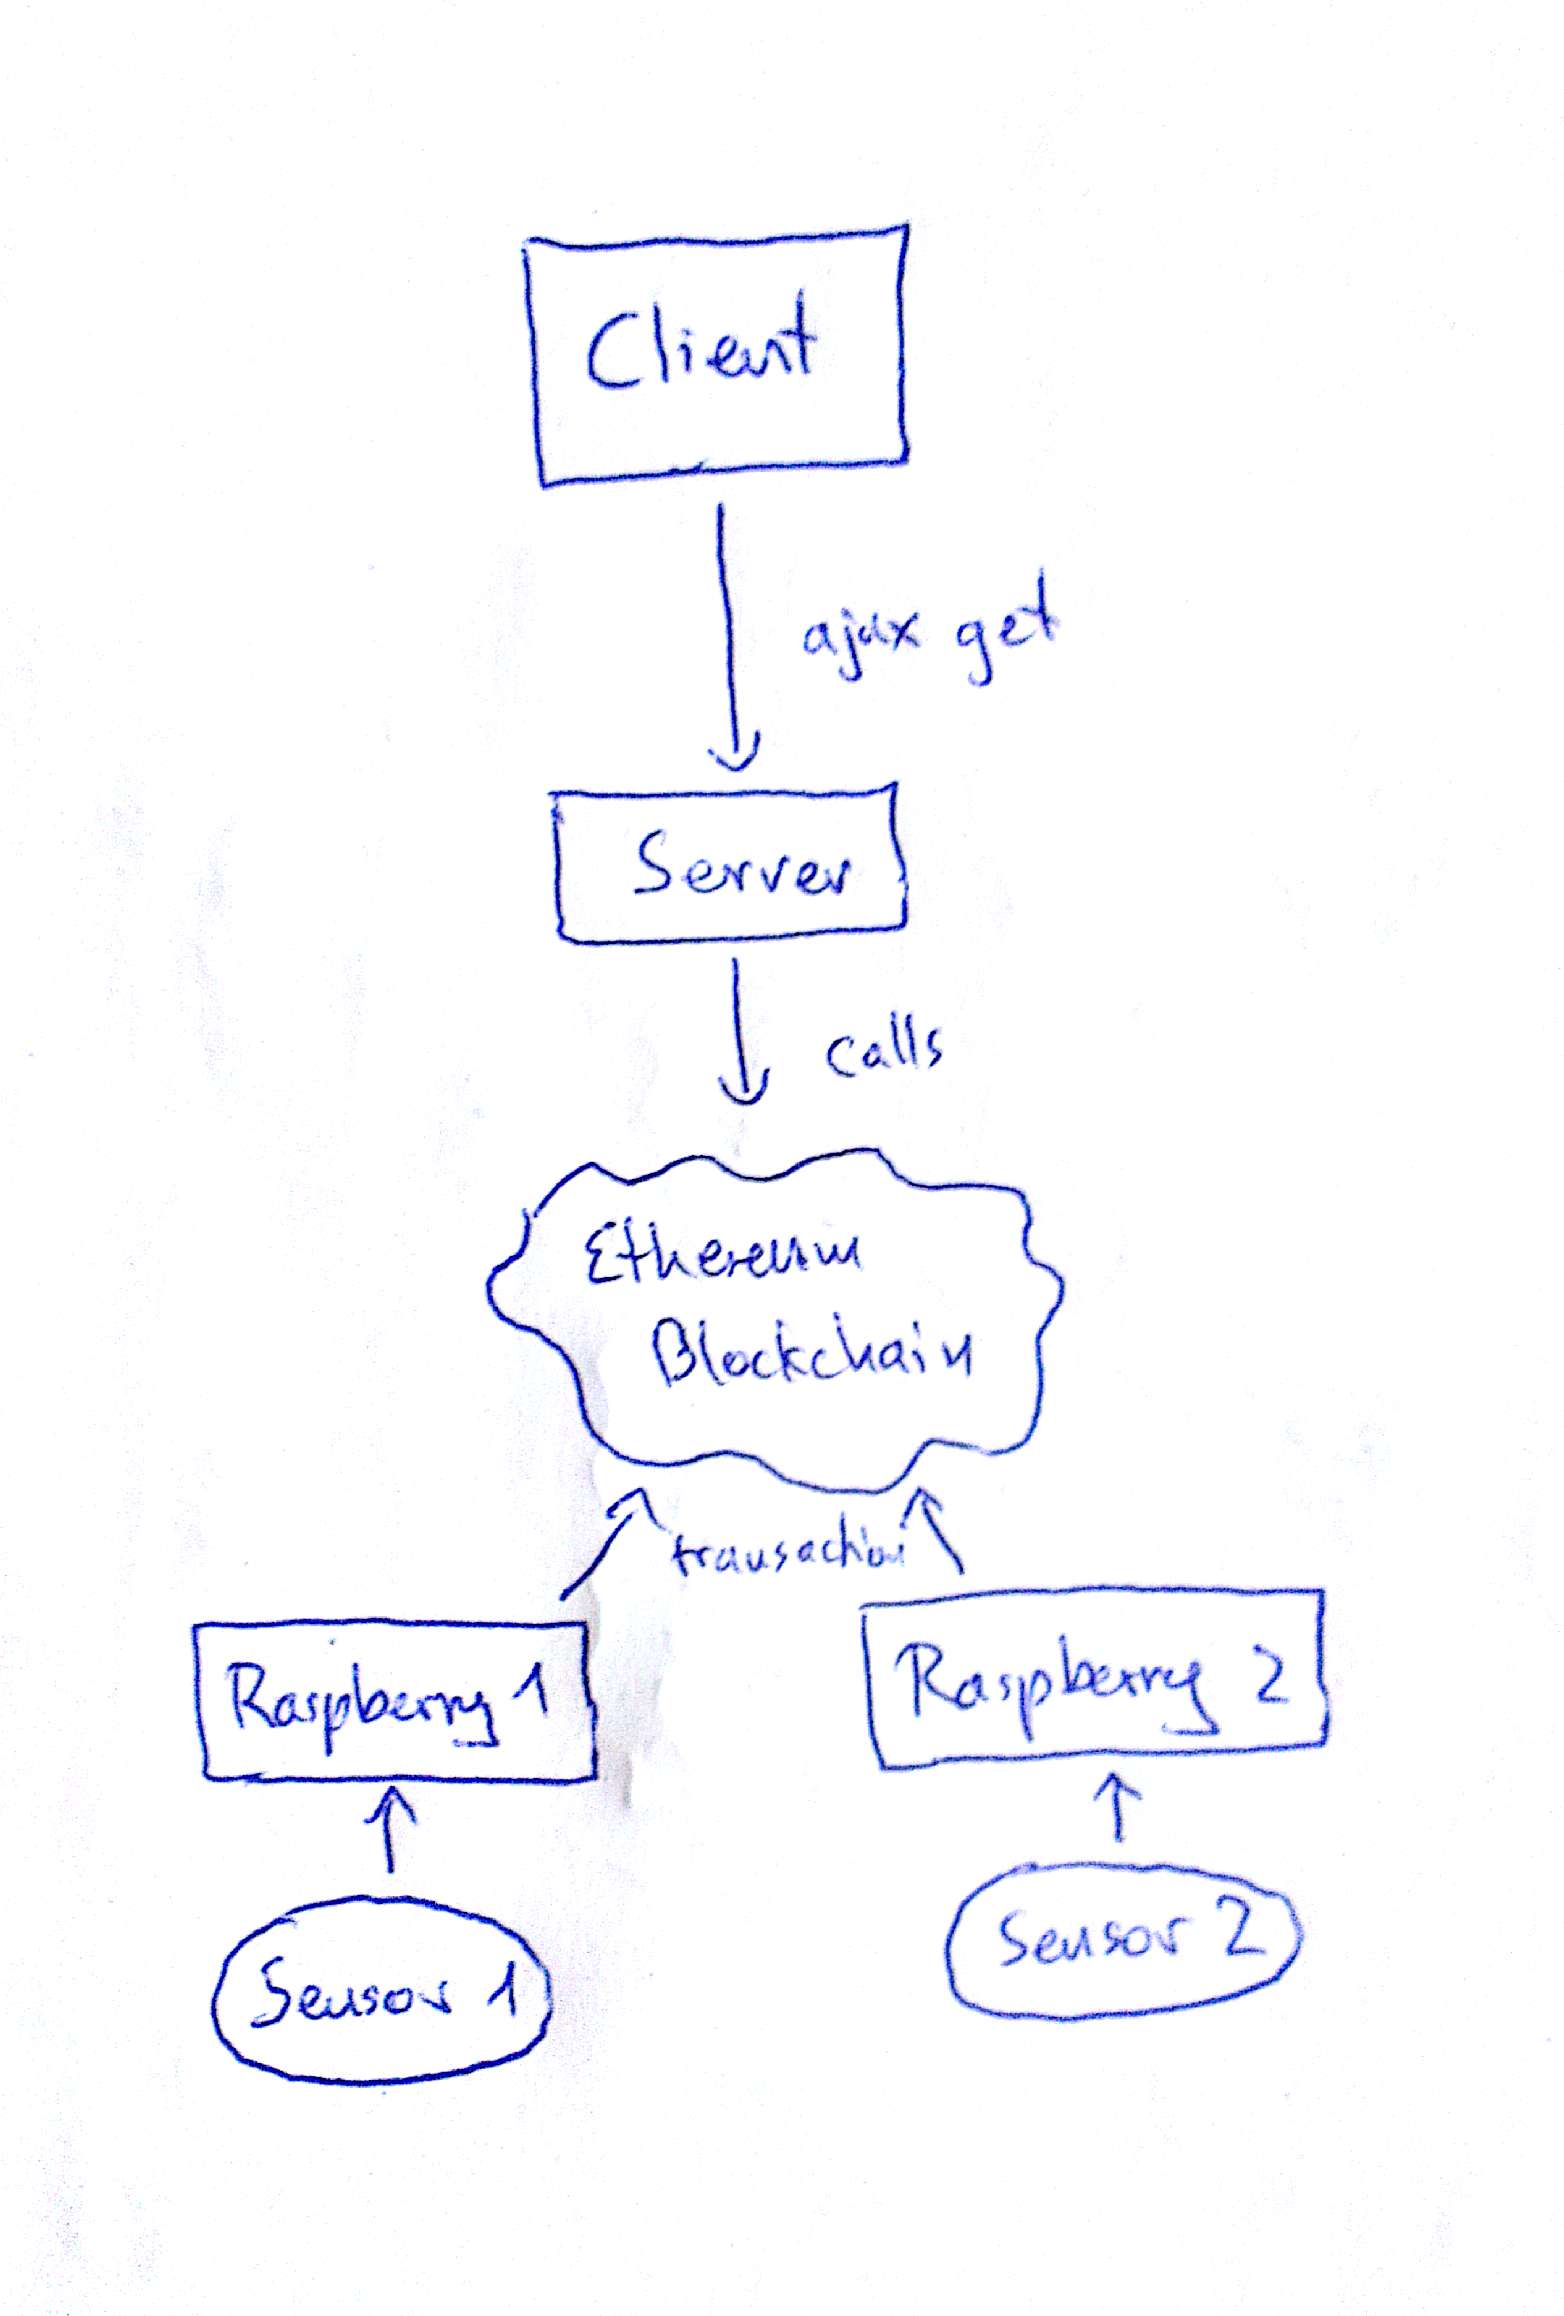 Client
ajax get
Server
calls
Ethereum
Blockchain
transaction
Raspberry 1
Raspberry 2
Sensor 1
Sensor 2